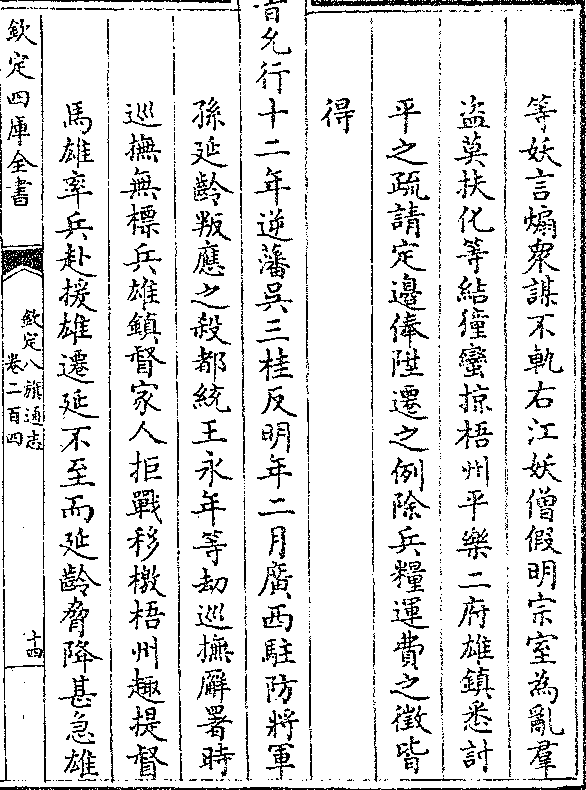 等妖言煽衆謀不軌右江妖僧假明宗室為亂羣
盗莫扶化等結獞蠻掠梧州平樂二府雄鎮悉計
平之疏請定邉俸陞遷之例除兵糧運費之徵皆
得
旨允行十二年逆藩吳三桂反明年二月廣西駐防將軍
孫延齡叛應之殺都統王永年等劫巡撫廨署時
巡撫無標兵雄鎮督家人拒戰移檄梧州趣提督
馬雄率兵赴援雄遷延不至而延齡脅降甚急雄
欽定四庫全書
欽定八旗通志
卷二百四
十四